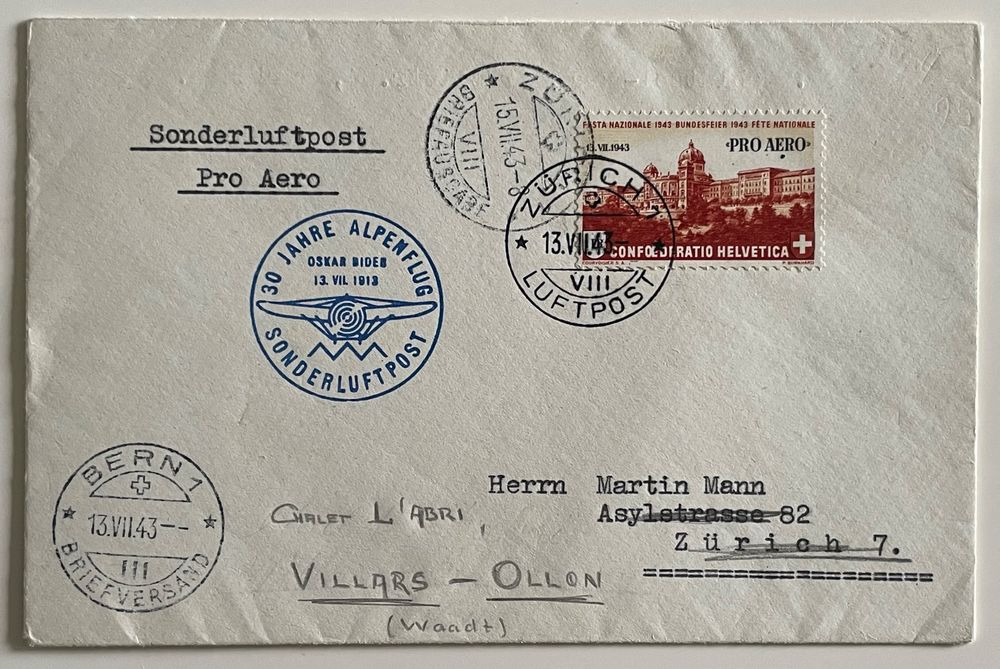 Sonderluftpost
Pro Aero
30 JAHRE ALPENFLUG
OSKAR BIDER
13. VII. 1913
SONDERLUFTPOST
ZÜRI
15.VII.43-8
VIII
BRIEFAUSGABE
FESTA NAZIONALE 1943 BUNDESFEIER 1943 FÊTE NATIONALE
13.VII.1943
«PRO AERO»
CONFOEDERATIO HELVETICA
COURVOISIER S.A.
ZÜRICH 1
13.VII.43-
VIII
LUFTPOST
BERN 1
13.VII.43--
III
BRIEFVERSAND
Herrn Martin Mann
Asylstrasse 82
Zürich 7.
CHALET L'ABRI,
VILLARS – OLLON
(Waadt)